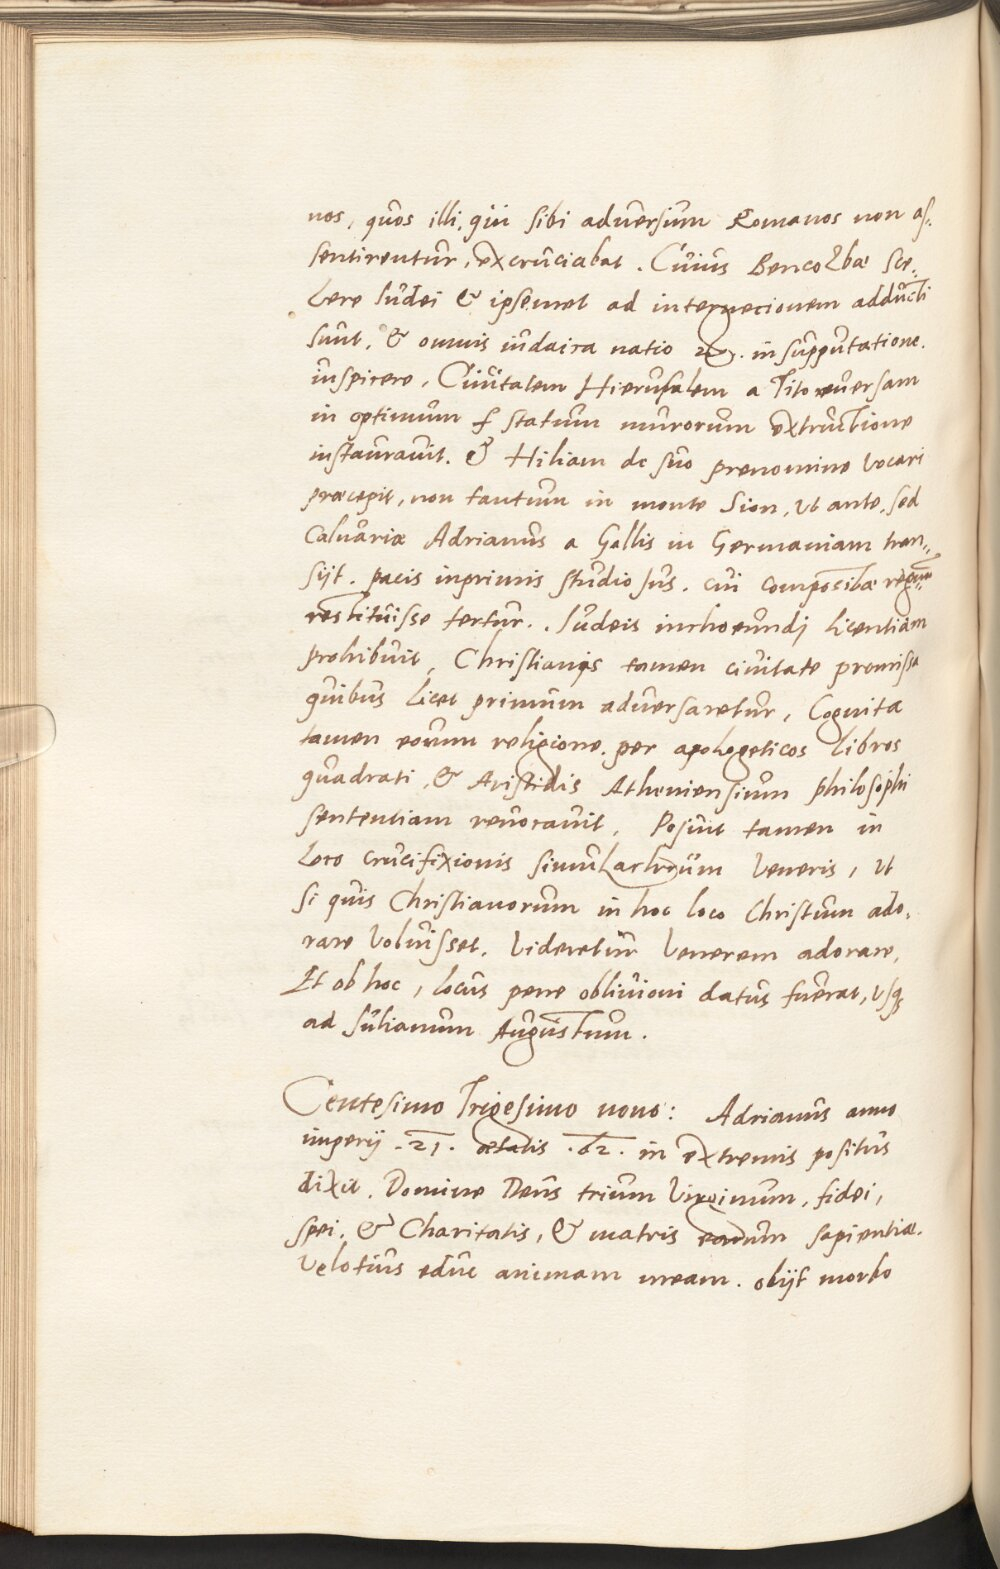 nos, quos illi, qui sibi adversum Romanos non as,
sentirentur, excruciabat. Cuius Bencolbae sce,
lere Iudei & ipsemet ad internecionem adducti
sunt, & omnis iudaica natio in supputatione.
inspicere, Civitatem Hierusalem a Tito eversam
in optimum statum murorum extructione
instauravit. & Hiliam de suo prenomine vocari
praecepit, non tantum in monte Sion, ut ante, sed
Calvariae Adrianus a Gallis in Germaniam tran,,
sijt. pacis inprimis studiosus. cui
restituisse fertur.. Iudeis introeundj licentiam
prohibuit, Christianis tamen civitate promissa
quibus licet primum adversaretur, Cognita
tamen eorum religione. per apologeticos libros
quadrati, & Aristidis Atheniensium philosophi
sententiam revocavit, Posuit tamen in
loco crucifixionis simulachrum Veneris, ut
si quis Christianorum in hoc loco Christum ado,
rare voluisset, videretur Venerem adorare,
Et ob hoc, locus pene oblivioni datus fuerat, usq
ad Iulianum Augustum.
Centesimo Trigesimo nono: Adrianus anno
imperij .21. aetatis .62. in extremis positus
dixit. Domine Deus trium Virginum, fidei,
spei, & Charitatis, & matris earum sapientiae.
Velotius educ animam meam. obijt morbo